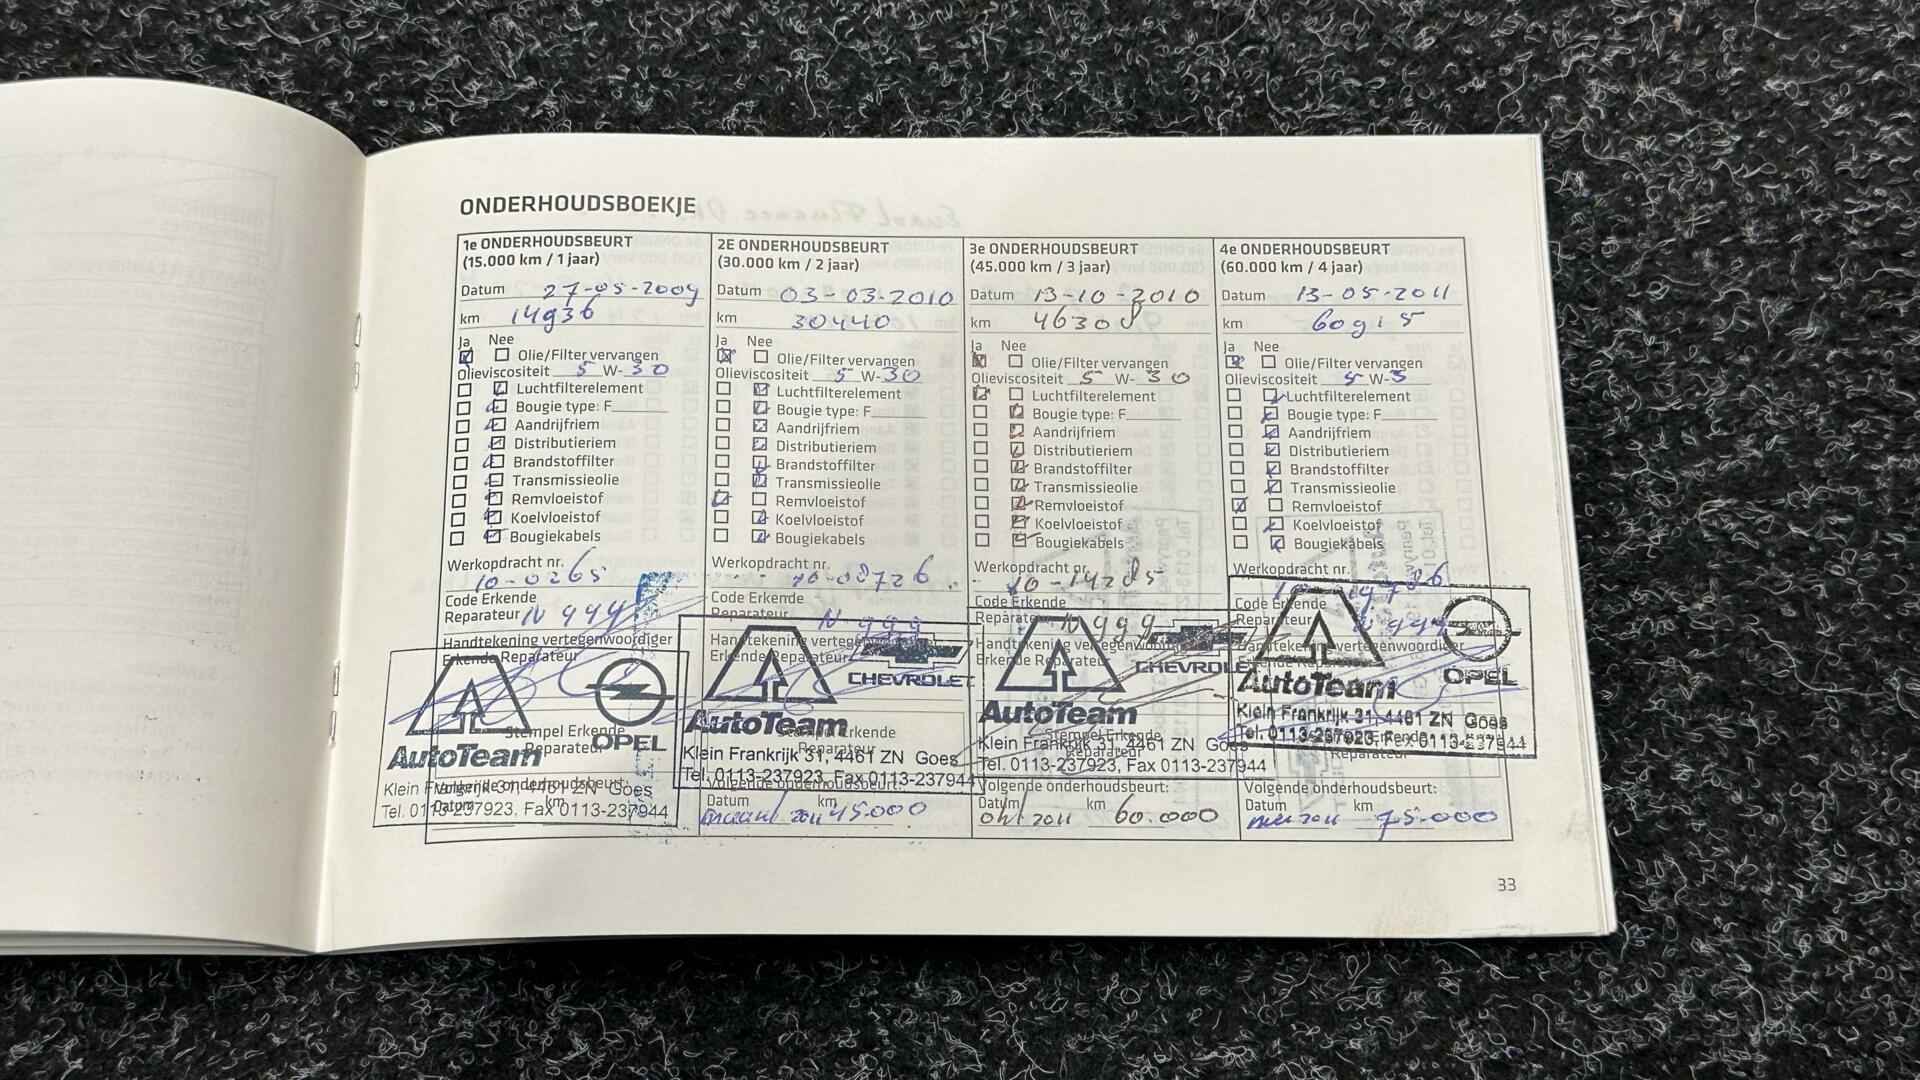 ONDERHOUDSBOEKJE
1e ONDERHOUDSBEURT
(15.000 km / 1 jaar)
Datum 27-05-2009
km 14936
Ja Nee
Olie/Filter vervangen
Olieviscositeit 5 W-30
Luchtfilterelement
Bougie type: F
Aandrijfriem
Distributieriem
Brandstoffilter
Transmissieolie
Remvloeistof
Koelvloeistof
Bougiekabels
Werkopdracht nr.
10-0265
Code Erkende
Reparateur N 999
Handtekening vertegenwoordiger
Erkende Reparateur
Stempel Erkende
Reparateur
AutoTeam OPEL
Klein Frankrijk 31, 4461 ZN Goes
Tel. 0113-237923, Fax 0113-237944
Volgende onderhoudsbeurt:
Datum km
2E ONDERHOUDSBEURT
(30.000 km / 2 jaar)
Datum 03-03-2010
km 30440
Ja Nee
Olie/Filter vervangen
Olieviscositeit 5 W-30
Luchtfilterelement
Bougie type: F
Aandrijfriem
Distributieriem
Brandstoffilter
Transmissieolie
Remvloeistof
Koelvloeistof
Bougiekabels
Werkopdracht nr.
10-08726
Code Erkende
Reparateur N 999
Handtekening vertegenwoordiger
Erkende Reparateur
CHEVROLET
AutoTeam
Stempel Erkende
Reparateur
Klein Frankrijk 31, 4461 ZN Goes
Tel. 0113-237923, Fax 0113-237944
Volgende onderhoudsbeurt:
Datum km
2011 45.000
3e ONDERHOUDSBEURT
(45.000 km / 3 jaar)
Datum 13-10-2010
km 46308
Ja Nee
Olie/Filter vervangen
Olieviscositeit 5 W-30
Luchtfilterelement
Bougie type: F
Aandrijfriem
Distributieriem
Brandstoffilter
Transmissieolie
Remvloeistof
Koelvloeistof
Bougiekabels
Werkopdracht nr.
10-14285
Code Erkende
Reparateur N 999
Handtekening vertegenwoordiger
Erkende Reparateur
CHEVROLET
AutoTeam
Stempel Erkende
Reparateur
Klein Frankrijk 31, 4461 ZN Goes
Tel. 0113-237923, Fax 0113-237944
Volgende onderhoudsbeurt:
Datum km
okt 2011 60.000
4e ONDERHOUDSBEURT
(60.000 km / 4 jaar)
Datum 13-05-2011
km 60915
Ja Nee
Olie/Filter vervangen
Olieviscositeit 5 W-3
Luchtfilterelement
Bougie type: F
Aandrijfriem
Distributieriem
Brandstoffilter
Transmissieolie
Remvloeistof
Koelvloeistof
Bougiekabels
Werkopdracht nr.
Code Erkende
Reparateur N 999
Handtekening vertegenwoordiger
Erkende Reparateur
AutoTeam OPEL
Klein Frankrijk 31, 4461 ZN Goes
Tel. 0113-237923, Fax 0113-237944
Stempel Erkende
Reparateur
Volgende onderhoudsbeurt:
Datum km
75.000
33